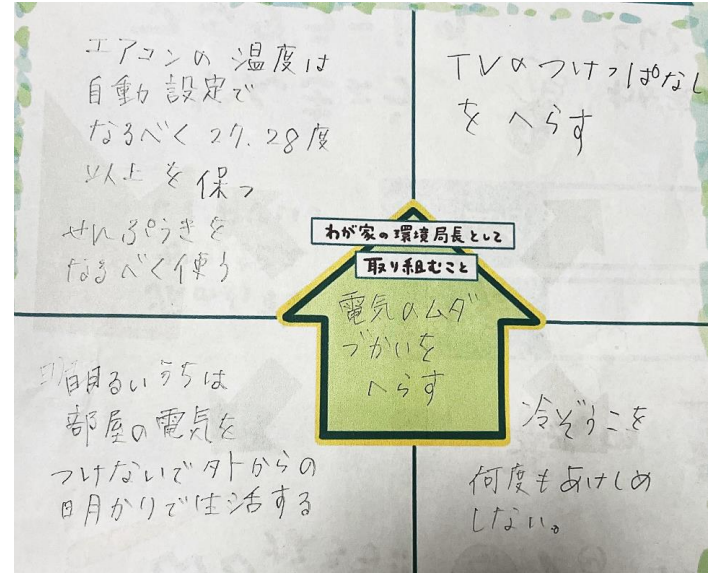 エアコンの温度は
自動設定で
なるべく27.28度
以上を保つ
せんぷうきを
なるべく使う
TVのつけっぱなし
をへらす
わが家の環境局長として
取り組むこと
電気のムダ
づかいを
へらす
明るいうちは
部屋の電気を
つけないで外からの
明かりで生活する
冷ぞうこを
何度もあけしめ
しない。